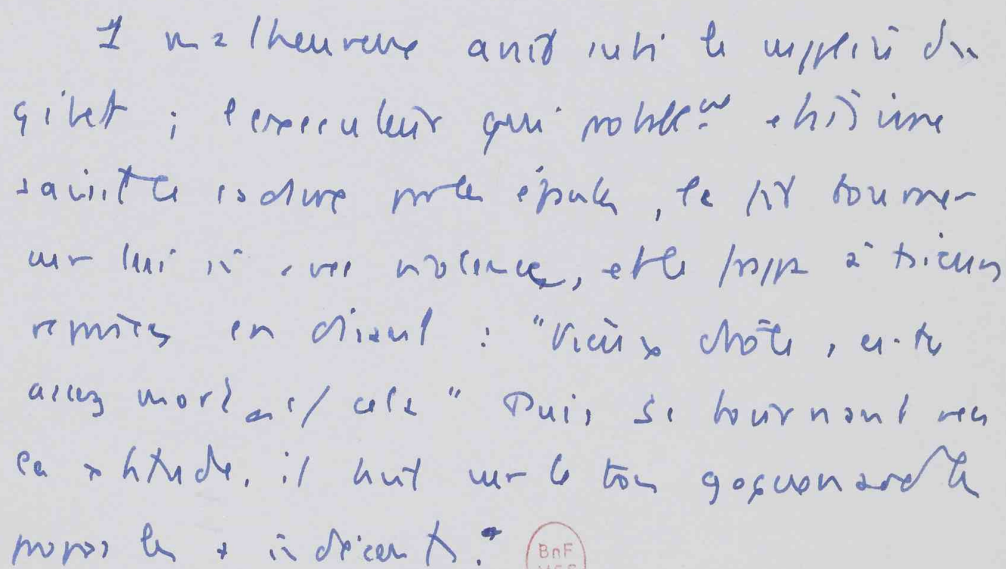 1 malheureux avait subi le supplice du
gibet ; l'exécuteur qui probblt était ivre
saisit le cadavre par les épaules, le fit tourner
sur lui-m avec violence, et le frappa à plusieurs
reprises en disant : "Vieux drôle, es-tu
assez mort c/ cela" Puis se tournant vers
la multitude, il tint sur le ton goguenard les
propos les + indécents."
BnF
MSS